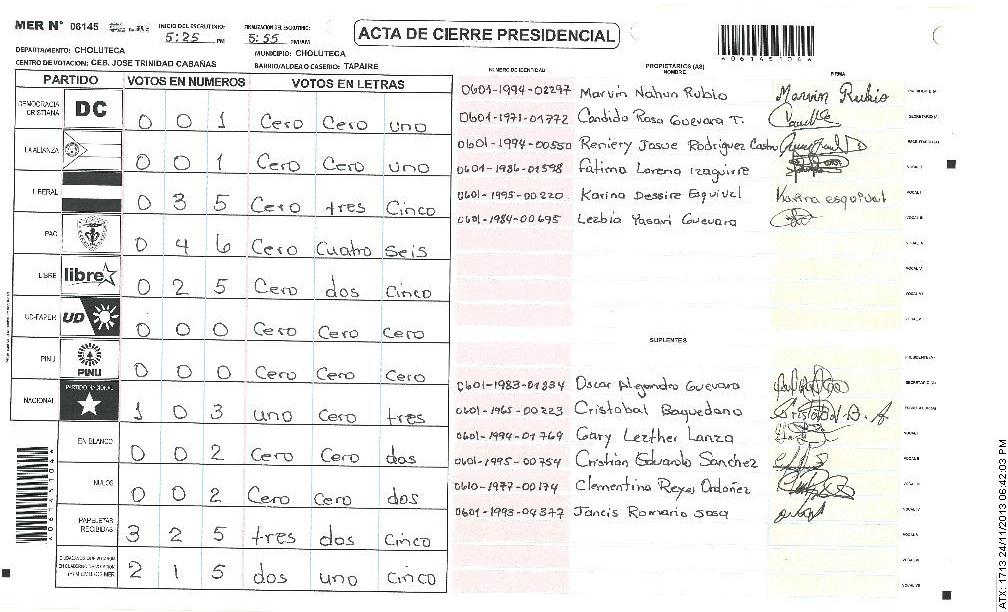 MER N° 06145 INICIO DEL ESCRUTINIO: 5:25 PM FINALIZACION DEL ESCRUTINIO: 5:55 PM/AM
ACTA DE CIERRE PRESIDENCIAL
DEPARTAMENTO: CHOLUTECA MUNICIPIO: CHOLUTECA
CENTRO DE VOTACION: CEB. JOSE TRINIDAD CABAÑAS BARRIO/ALDEA O CASERIO: TAPAIRE
4061451044
PARTIDO VOTOS EN NUMEROS VOTOS EN LETRAS
DEMOCRACIA CRISTIANA DC 0 0 1 Cero Cero uno
LA ALIANZA 0 0 1 Cero Cero uno
LIBERAL 0 3 5 Cero tres Cinco
PAC 0 4 6 Cero Cuatro Seis
LIBRE libre 0 2 5 Cero dos Cinco
UD-FAPER UD 0 0 0 Cero Cero Cero
PINU PINU 0 0 0 Cero Cero Cero
NACIONAL PARTIDO NACIONAL 1 0 3 uno Cero tres
EN BLANCO 0 0 2 Cero Cero dos
NULOS 0 0 2 Cero Cero dos
PAPELETAS RECIBIDAS 3 2 5 tres dos Cinco
2 1 5 dos uno Cinco
NUMERO DE IDENTIDAD PROPIETARIOS (AS) NOMBRE FIRMA
0601-1994-02297 Marvin Nahun Rubio Marvin Rubio PRESIDENTE (A)
0601-1971-01772 Candido Rosa Guevara T. SECRETARIO (A)
0601-1994-00550 Reniery Josue Rodriguez Castro
0601-1986-01598 Fatima Lorena Izaguirre VOCAL I
0601-1995-00220 Karina Dessire Esquivel Karina esquivel
0601-1984-00695 Lezbia Yasari Guevara
SUPLENTES
PRESIDENTE (A)
0601-1983-01834 Oscar Alejandro Guevara SECRETARIO (A)
0601-1965-00223 Cristobal Baquedano Cristobal B. A
0601-1994-01769 Gary Lezther Lanza
0601-1995-00754 Cristian Eduardo Sanchez
0610-1977-00174 Clementina Reyes Ordoñez
0601-1993-04377 Jancis Romario Sosa
ATX: 1713 24/11/2013 06:42:03 PM